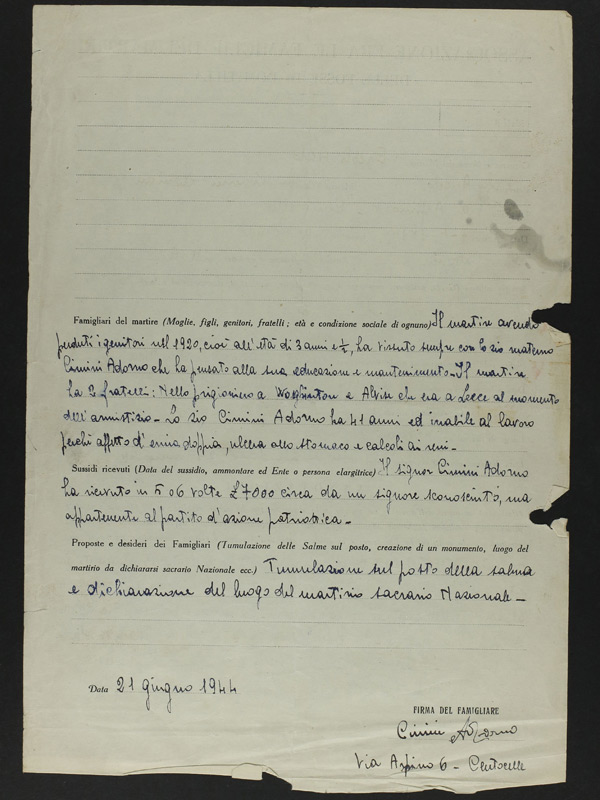 Famigliari del martire (Moglie, figli, genitori, fratelli; età e condizione sociale di ognuno) Il martire avendo
perduti i genitori nel 1920, cioè all'età di 3 anni e ½, ha vissuto sempre con lo zio materno
Cimini Adorno che ha pensato alla sua educazione e mantenimento - Il martire
ha 2 fratelli: Nello prigioniero a e Alvise che era a Lecce al momento
dell'armistizio - Lo zio Cimini Adorno ha 41 anni ed inabile al lavoro
perchè affetto d'ernia doppia, ulcera allo stomaco e calcoli ai reni -
Sussidi ricevuti (Data del sussidio, ammontare ed Ente o persona elargitrice) Il signor Cimini Adorno
ha ricevuto in 5 o 6 volte £ 7000 circa da un signore sconosciuto, ma
appartenente al partito d'azione patriottica -
Proposte e desideri dei Famigliari (Tumulazione delle Salme sul posto, creazione di un monumento, luogo del
martirio da dichiararsi sacrario Nazionale ecc.) Tumulazione sul posto della salma
e dichiarazione del luogo del martirio sacrario Nazionale -
Data 21 giugno 1944
FIRMA DEL FAMIGLIARE
Cimini Adorno
Via 6 - Centocelle